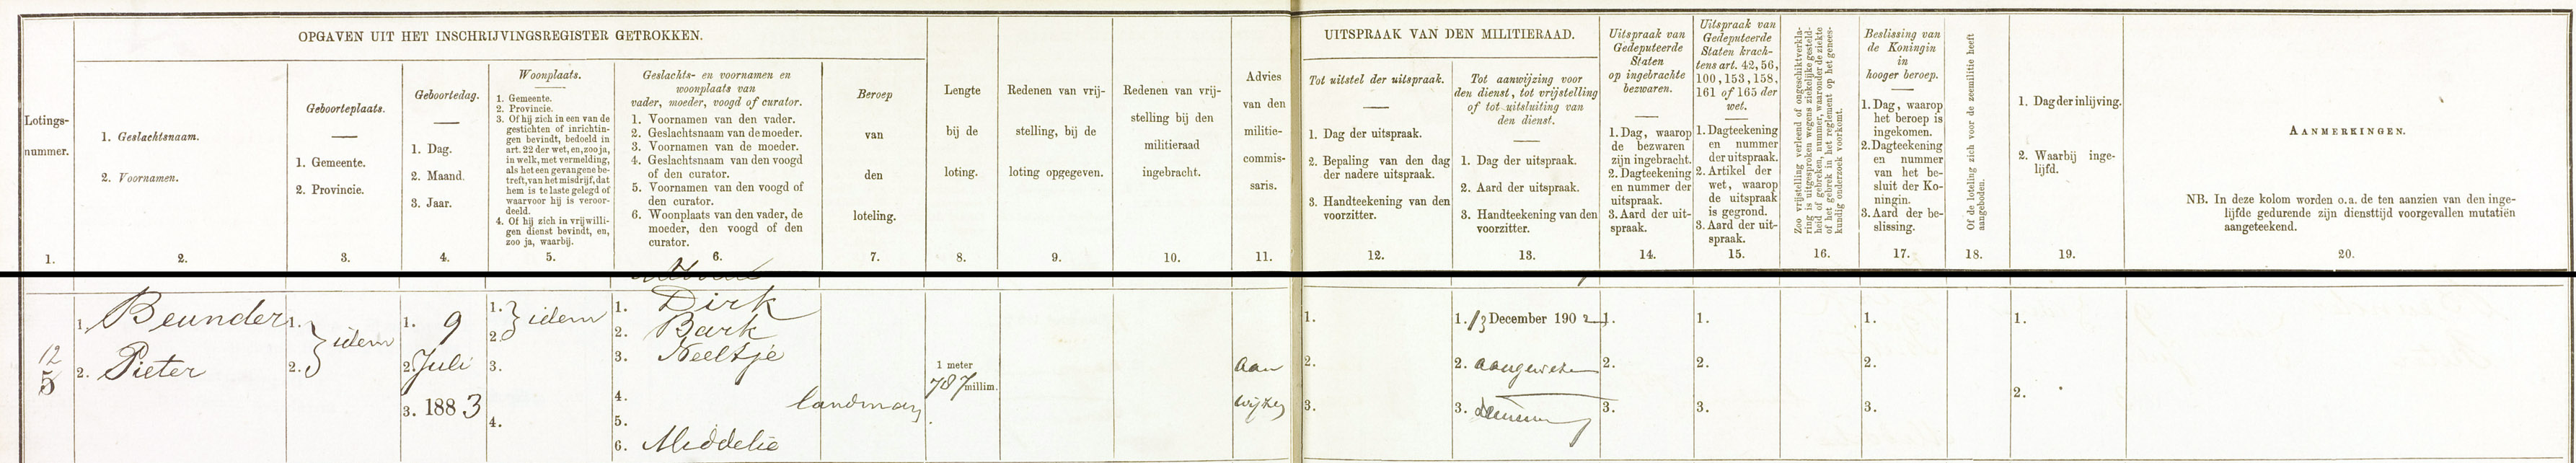 OPGAVEN UIT HET INSCHRIJVINGSREGISTER GETROKKEN.
Lotings-
nummer.
1.
1. Geslachtsnaam.
2. Voornamen.
2.
Geboorteplaats.
1. Gemeente.
2. Provincie.
3.
Geboortedag.
1. Dag.
2. Maand.
3. Jaar.
4.
Woonplaats.
1. Gemeente.
2. Provincie.
3. Of hij zich in een van de
gestichten of inrichtin-
gen bevindt, bedoeld in
art. 22 der wet, en, zoo ja,
in welk, met vermelding,
als het een gevangene be-
treft, van het misdrijf, dat
hem is te laste gelegd of
waarvoor hij is veroor-
deeld.
4. Of hij zich in vrijwilli-
gen dienst bevindt, en,
zoo ja, waarbij.
5.
Geslachts- en voornamen en
woonplaats van
vader, moeder, voogd of curator.
1. Voornamen van den vader.
2. Geslachtsnaam van de moeder.
3. Voornamen van de moeder.
4. Geslachtsnaam van den voogd
of den curator.
5. Voornamen van den voogd of
den curator.
6. Woonplaats van den vader, de
moeder, den voogd of den
curator.
6.
Beroep
van
den
loteling.
7.
Lengte
bij de
loting.
8.
Redenen van vrij-
stelling, bij de
loting opgegeven.
9.
Redenen van vrij-
stelling bij den
militieraad
ingebracht.
10.
Advies
van den
militie-
commis-
saris.
11.
UITSPRAAK VAN DEN MILITIERAAD.
Tot uitstel der uitspraak.
1. Dag der uitspraak.
2. Bepaling van den dag
der nadere uitspraak.
3. Handteekening van den
voorzitter.
12.
Tot aanwijzing voor
den dienst, tot vrijstelling
of tot uitsluiting van
den dienst.
1. Dag der uitspraak.
2. Aard der uitspraak.
3. Handteekening van den
voorzitter.
13.
Uitspraak van
Gedeputeerde
Staten
op ingebrachte
bezwaren.
1. Dag, waarop
de bezwaren
zijn ingebracht.
2. Dagteekening
en nummer der
uitspraak.
3. Aard der uit-
spraak.
14.
Uitspraak van
Gedeputeerde
Staten krach-
tens art. 42, 56,
100, 153, 158,
161 of 165 der
wet.
1. Dagteekening
en nummer
der uitspraak.
2. Artikel der
wet, waarop
de uitspraak
is gegrond.
3. Aard der uit-
spraak.
15.
Zoo vrijstelling verleend of ongeschiktverkla-
ring is uitgesproken wegens ziekelijke gesteld-
heid of gebreken, nummer, waaronder de ziekte
of het gebrek in het reglement op het genees-
kundig onderzoek voorkomt.
16.
Beslissing van
de Koningin
in
hooger beroep.
1. Dag, waarop
het beroep is
ingekomen.
2. Dagteekening
en nummer
van het be-
sluit der Ko-
ningin.
3. Aard der be-
slissing.
17.
Of de loteling zich voor de zeemilitie heeft
aangeboden.
18.
1. Dag der inlijving.
2. Waarbij inge-
lijfd.
19.
AANMERKINGEN.
NB. In deze kolom worden o.a. de ten aanzien van den inge-
lijfde gedurende zijn diensttijd voorgevallen mutatiën
aangeteekend.
20.
12
5
1. Beunder
2. Pieter
1. } idem
2.
1. 9
2. Juli
3. 1883
1. } idem
2.
3.
4.
1. Dirk
2. Bark
3. Neeltje
4.
5.
6. Middelie
landman
1 meter
787 millim.
Aan
wijzen
1.
2.
3.
1. 13 December 1902
2. aangewezen
3.
1.
2.
3.
1.
2.
3.
1.
2.
3.
1.
2.